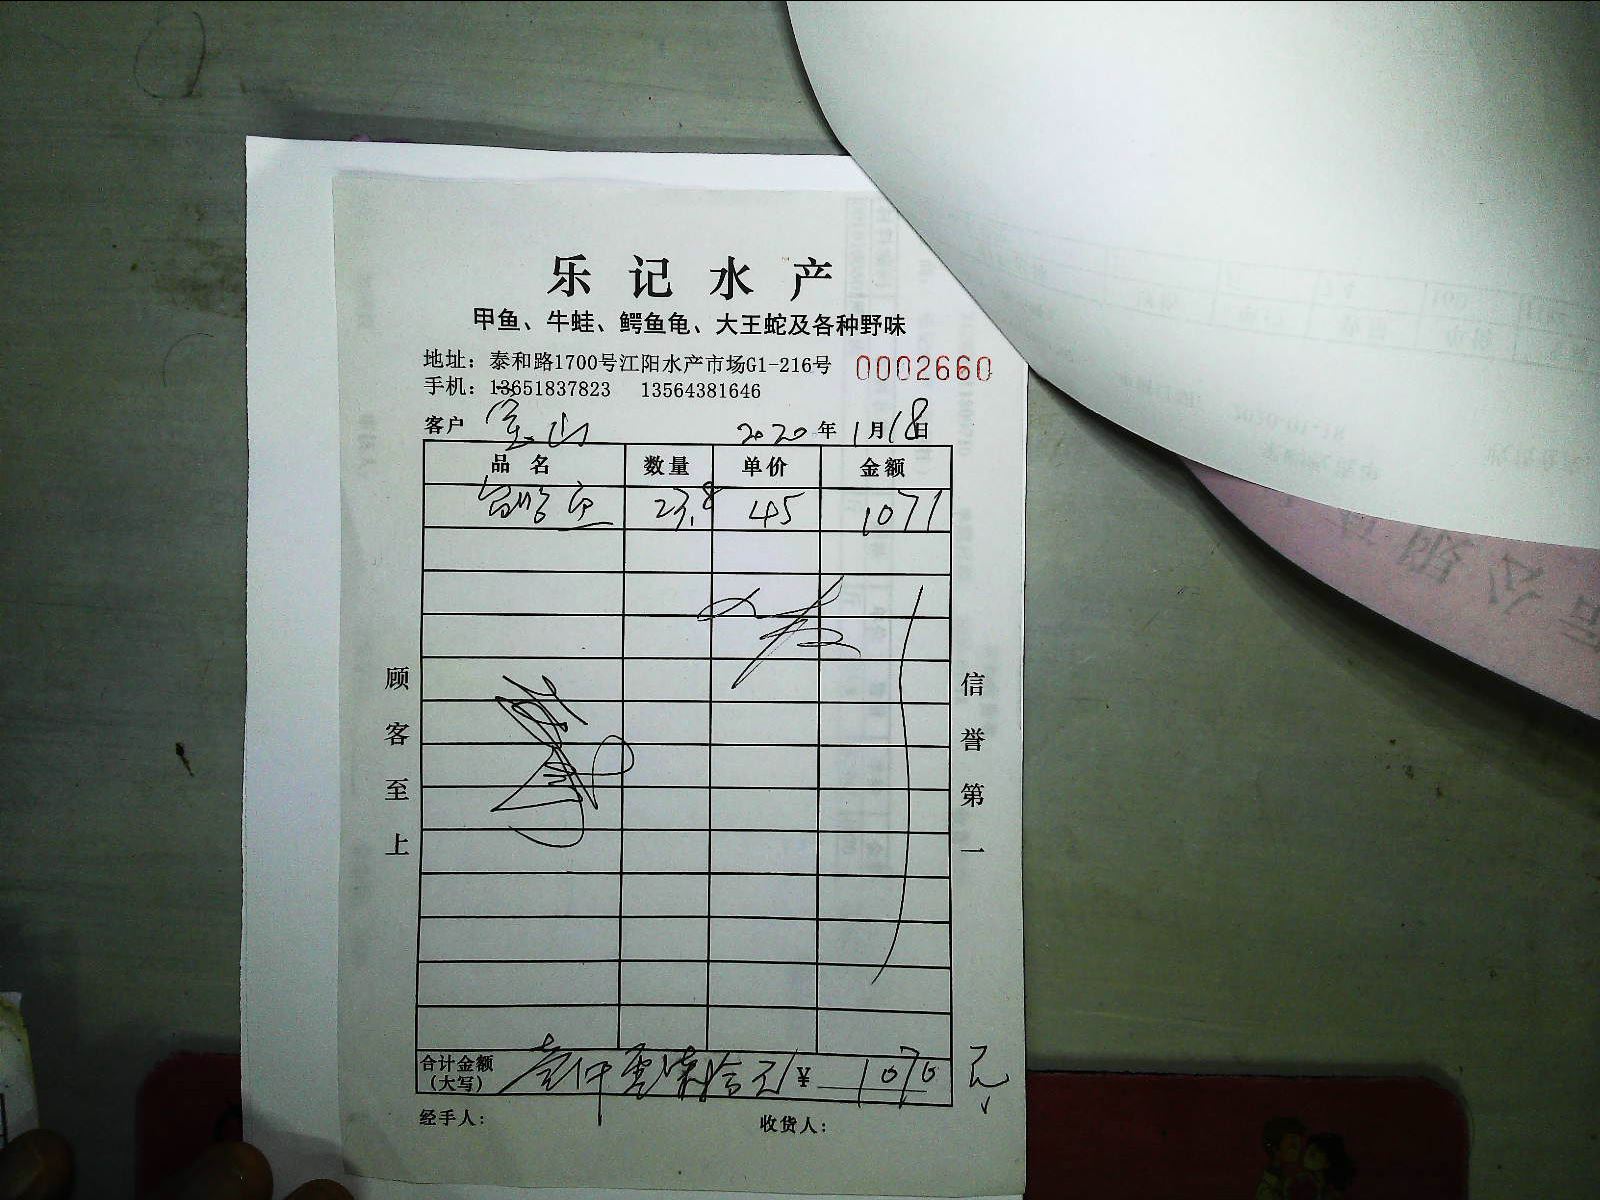 乐记水产
甲鱼、牛蛙、鳄鱼龟、大王蛇及各种野味
地址：泰和路1700号江阳水产市场G1-216号 0002660
手机：13651837823 13564381646
客户 宝山 2020年1月18日
品名 数量 单价 金额
23.8 45 1071
顾客至上
信誉第一
合计金额（大写） 壹仟零柒拾元 ¥ 1070元
经手人： 收货人：